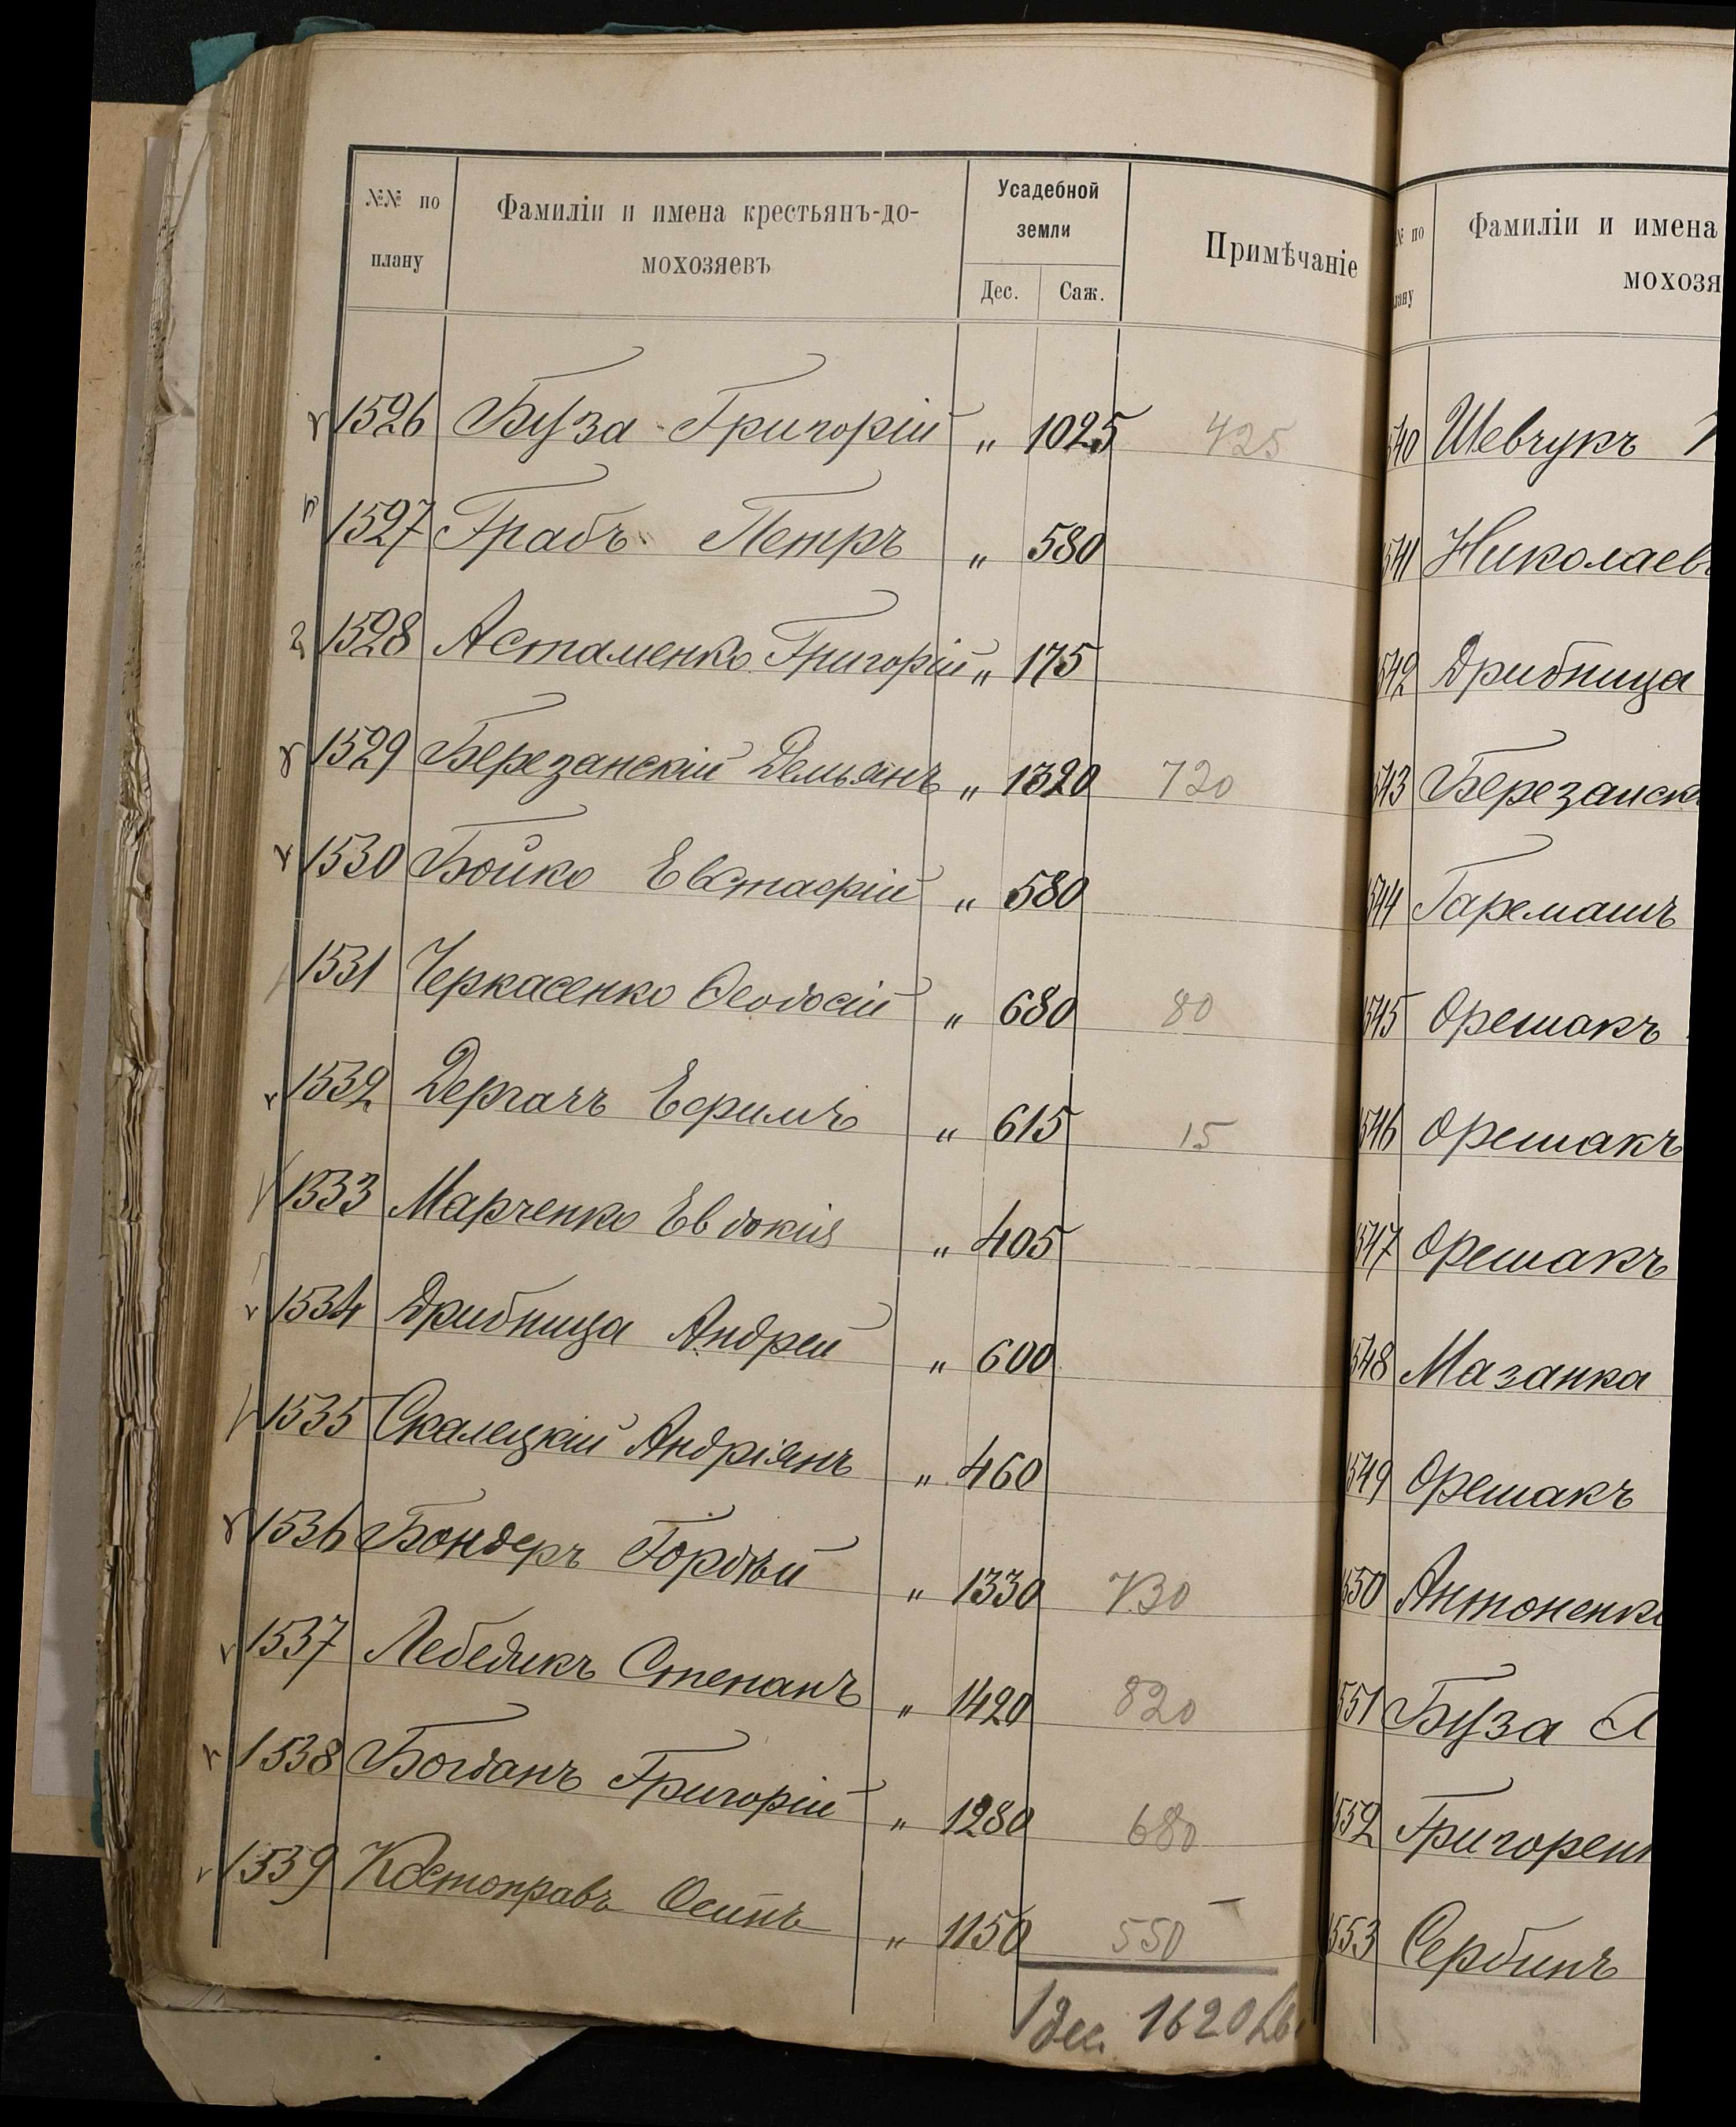 №№ по плану
Фамиліи и имена крестьянъ-до-
мохозяевъ
Усадебной
земли
Дес. Саж.
Примѣчаніе
1526 Буза Григорій „ 1025 425
1527 Грабъ Петръ „ 580
1528 Астаменко Григорій „ 175
1529 Березанскій Демьянъ „ 1320 720
1530 Бойко Евстафій „ 580
1531 Черкасенко Ѳеодосій „ 680 80
1532 Дергачъ Ефимъ „ 615 15
1533 Марченко Евдокія „ 405
1534 Дрибница Андрей „ 600
1535 Скалецкій Андріянъ „ 460
1536 Бондеръ Гордѣй „ 1330 730
1537 Лебедикъ Степанъ „ 1420 820
1538 Богданъ Григорій „ 1280 680
1539 Костоправъ Осипъ „ 1150 550
1 дес. 1620
№ по
лану
Фамиліи и имена
мохозя
540 Шевчукъ
541 Николаев
542 Дрибница
543 Березанск
544 Гаремашъ
545 Орешакъ
546 Орешакъ
547 Орешакъ
548 Мазанка
549 Орешакъ
550 Антоненк
551 Буза
552 Григорен
553 Сербинъ